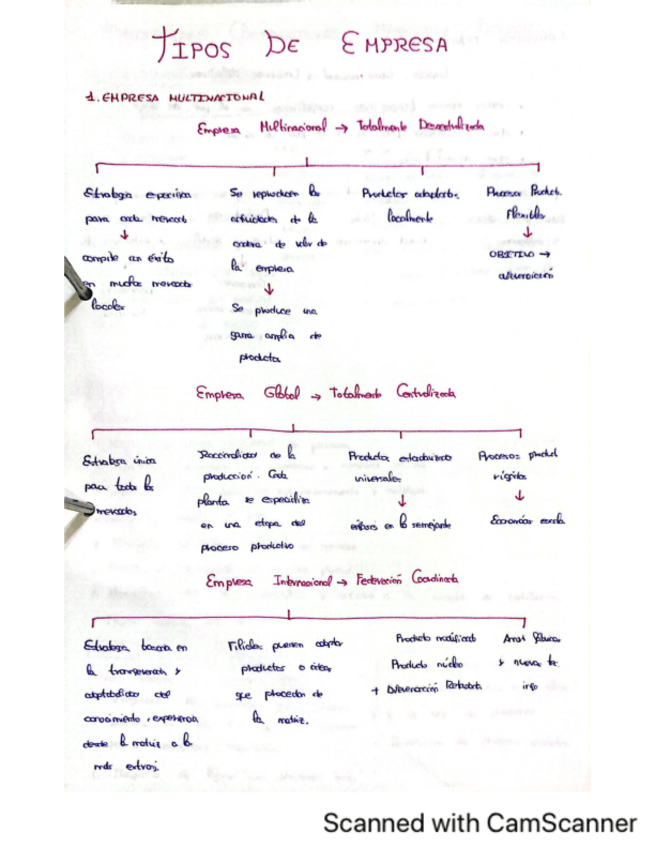 TIPOS DE EMPRESA
1. EMPRESA MULTINACIONAL
Empresa Multinacional → Totalmente Descentralizada
Estrategia especifica
para cada mercado
↓
compite con éxito
en muchos mercados
locales
Se reproducen las
actividades de la
cadena de valor de
la empresa
↓
Se produce una
gama amplia de
productos
Productos adaptados
localmente
Procesos Product.
Flexibles
↓
OBJETIVO →
Empresa Global → Totalmente Centralizada
Estrategia única
para todos los
mercados
Racionalidad de la
producción. Cada
planta se especializa
en una etapa del
proceso productivo
Productos estandarizados
universales
↓
énfasis en lo semejante
Procesos product
rígidos
↓
Economías escala
Empresa Internacional → Federación Coordinada
Estrategia basada en
la transferencia y
adaptabilidad del
conocimiento, experiencia
desde la matriz a los
mdos extranj.
Filiales pueden adaptar
productos o ideas
que procedan de
la matriz.
Producto modificado
Producto núcleo
+ Diferenciación
y nueva
Scanned with CamScanner